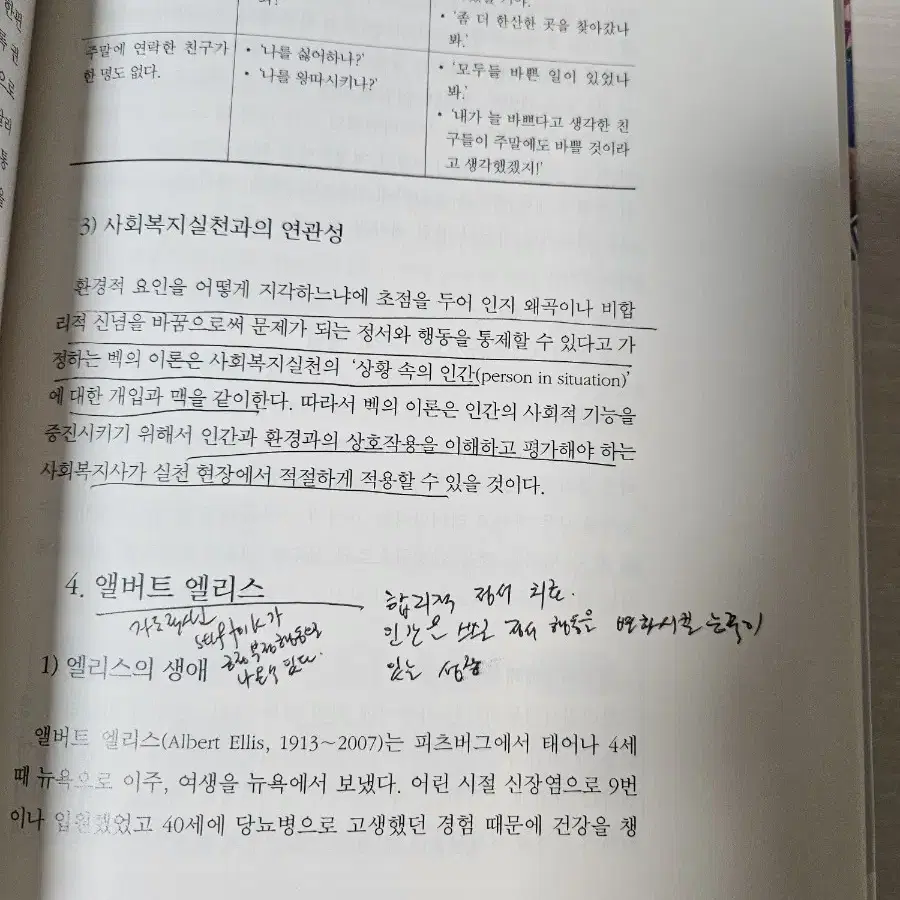 한편
독 권
으로
달리
통
을
해?'
• '좀 더 한산한 곳을 찾아갔나
봐.'
주말에 연락한 친구가
한 명도 없다.
• '나를 싫어하나?'
• '나를 왕따시키나?'
• '모두들 바쁜 일이 있었나
봐.'
• '내가 늘 바쁘다고 생각한 친
구들이 주말에도 바쁠 것이라
고 생각했겠지!'
3) 사회복지실천과의 연관성
환경적 요인을 어떻게 지각하느냐에 초점을 두어 인지 왜곡이나 비합
리적 신념을 바꿈으로써 문제가 되는 정서와 행동을 통제할 수 있다고 가
정하는 벡의 이론은 사회복지실천의 '상황 속의 인간(person in situation)'
에 대한 개입과 맥을 같이한다. 따라서 벡의 이론은 인간의 사회적 기능을
증진시키기 위해서 인간과 환경과의 상호작용을 이해하고 평가해야 하는
사회복지사가 실천 현장에서 적절하게 적용할 수 있을 것이다.
4. 앨버트 엘리스
합리적 정서 치료.
인간은 스스로 정서 행동을 변화시킬 능력이
있는 성
1) 엘리스의 생애
앨버트 엘리스(Albert Ellis, 1913~2007)는 피츠버그에서 태어나 4세
때 뉴욕으로 이주, 여생을 뉴욕에서 보냈다. 어린 시절 신장염으로 9번
이나 입원했었고 40세에 당뇨병으로 고생했던 경험 때문에 건강을 챙